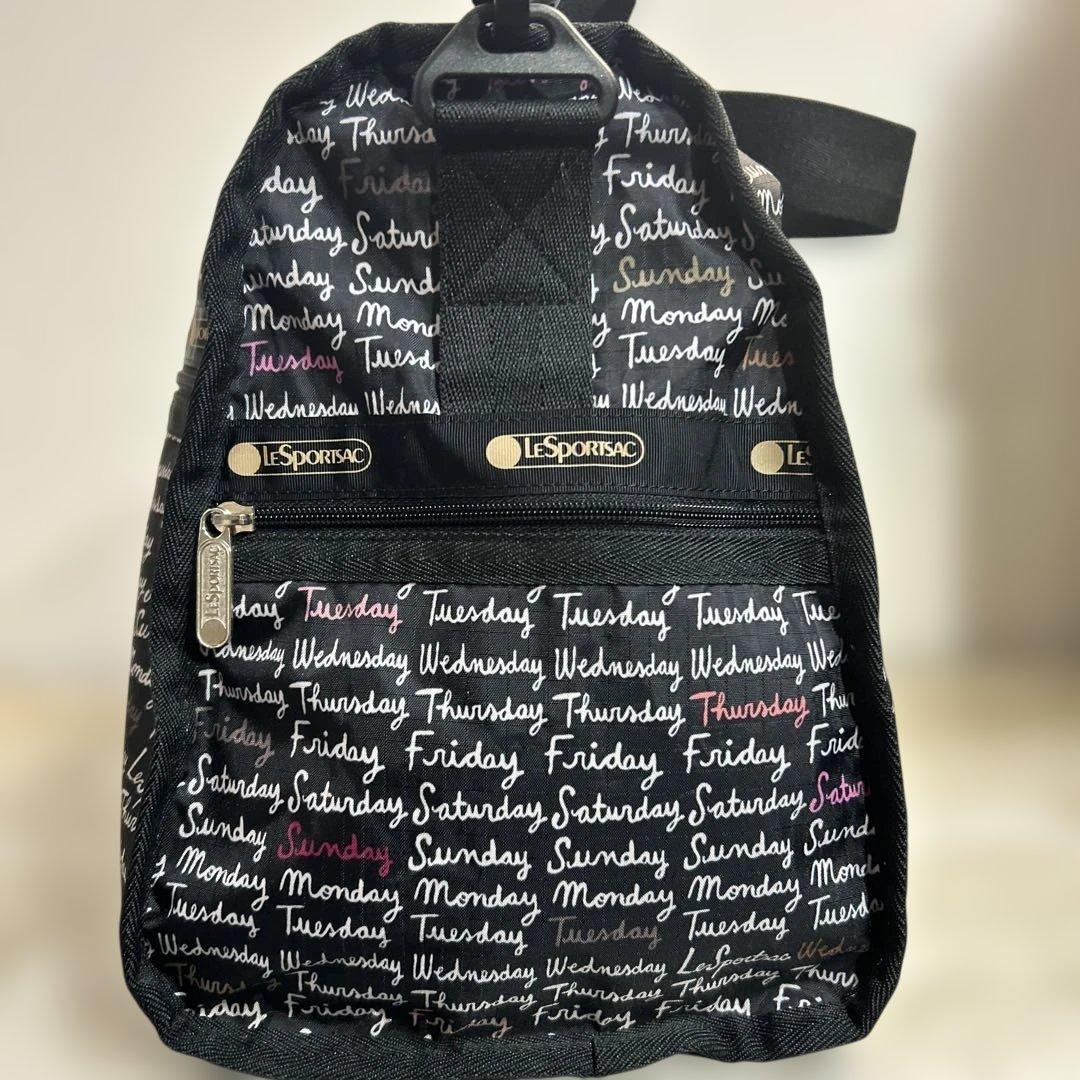 Wed
day Thursd Thurs
day Friday Friday
aturday Saturd y Saturday S
unday Sund Sunday Su
Monday Mond y Monday Mo
Tuesday Tuesd Tuesday Tues
Wednesday Wednes Wednesday Wedn
LESPORTSAC LESPORTSAC LES
LESPORTSAC
day Tuesday Tuesday Tuesday Tuesday Tue
Wednesday Wednesday Wednesday Wednesday Wednesday Wed
Thursday Thursday Thursday Thursday Thursday Thur
Friday Friday Friday Friday Friday Frid
Saturday Saturday Saturday Saturday Saturday Satur
Sunday Sunday Sunday Sunday Sunday Sund
y Monday Monday Monday Monday Monday Mond
Tuesday Tuesday Tuesday Tuesday Tuesday Tuesda
Wednesday Wednesday Wednesday Wednesday LeSportsac Wed
Thurs Thursday Thursday Thursday Thursday Thurs
day Friday Friday Friday Friday Fri